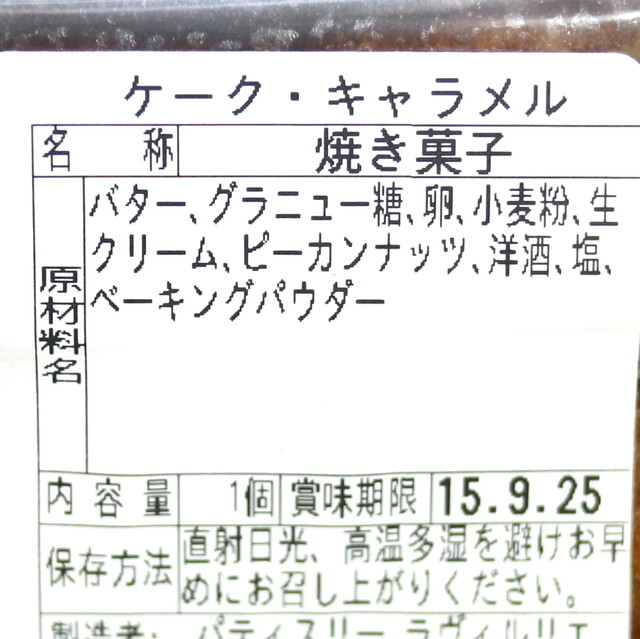 ケーク・キャラメル
名 称 焼き菓子
原材料名
バター、グラニュー糖、卵、小麦粉、生
クリーム、ピーカンナッツ、洋酒、塩、
ベーキングパウダー
内容量 1個 賞味期限 15.9.25
保存方法
直射日光、高温多湿を避けお早
めにお召し上がりください。
製造者: パティスリー ラヴィルリエ